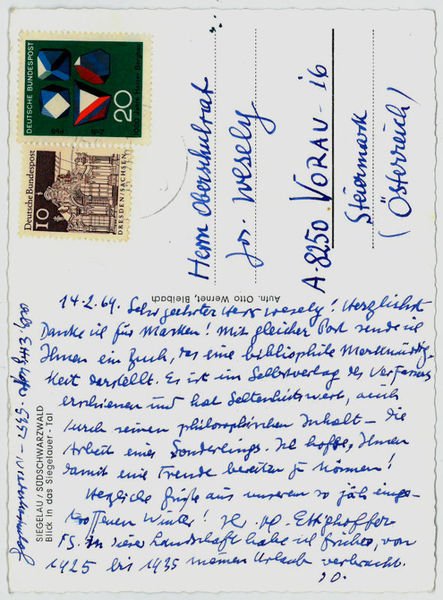 DEUTSCHE BUNDESPOST
20
Deutsche Bundespost
10
DRESDEN/SACHSEN
Herrn Oberschulrat
Jos. Wesely
A-8250 VORAU-16
Steiermark
(Österreich)
Aufn. Otto Wernet, Bleibach
SIEGELAU / SÜDSCHWARZWALD
Blick in das Siegelauer-Tal
14.2.69. Sehr geehrter Herr Wesely! Herzlichst
Danke ich für Marken! Mit gleicher Post sende ich
Ihnen ein Buch, das eine bibliophile Merkwürdig-
keit darstellt. Es ist im Selbstverlag des Verfassers
erschienen und hat Seltenheitswert, auch
durch seinen philosophischen Inhalt - die
Arbeit eines Sonderlings. Ich hoffe, Ihnen
damit eine Freude bereiten zu können!
Herzliche Grüße aus unserem so jäh einge-
troffenen Winter! Ihr
PS. In dieser Landschaft habe ich früher, von
1925 bis 1935 meinen Urlaub verbracht.